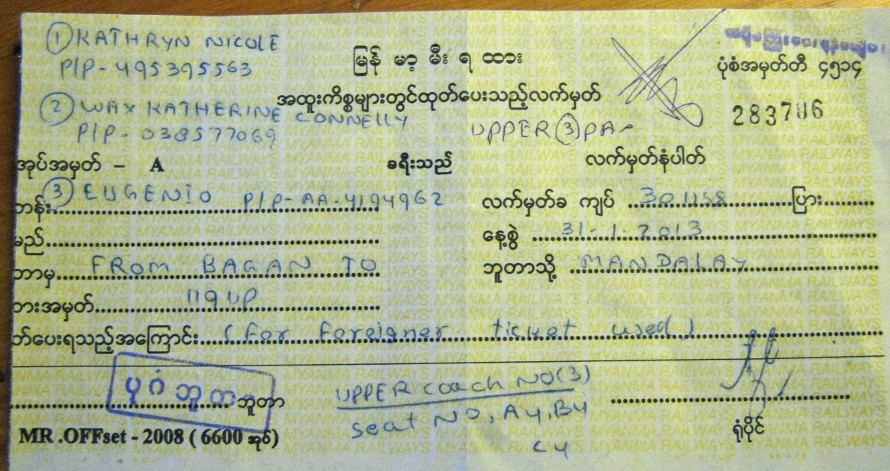 ① KATHRYN NICOLE
P/P-495395563
② WAX KATHERINE CONNELLY
P/P- 038577069
မြန် မာ့ မီး ရ ထား
အထူးကိစ္စများတွင်ထုတ်ပေးသည့်လက်မှတ်
ပုံစံအမှတ်တီ ၄၅၁၄
283706
UPPER ③ PA
အုပ်အမှတ် – A ခရီးသည် လက်မှတ်နံပါတ်
တန်း ③ EUGENIO P/P-AA-4194962 လက်မှတ်ခ ကျပ် 30 US$ ပြား
မည် နေ့စွဲ 31-1-2013
ဘာမှ FROM BAGAN TO ဘူတာသို့ MANDALAY
ထားအမှတ် 119 UP
တ်ပေးရသည့်အကြောင်း (For Foreigner ticket used)
ပုဂံ ဘူတာ ဘူတာ
UPPER coach NO(3)
seat NO, A4, B4
C4
ရုံပိုင်
MR .OFFset - 2008 ( 6600 အုပ်)